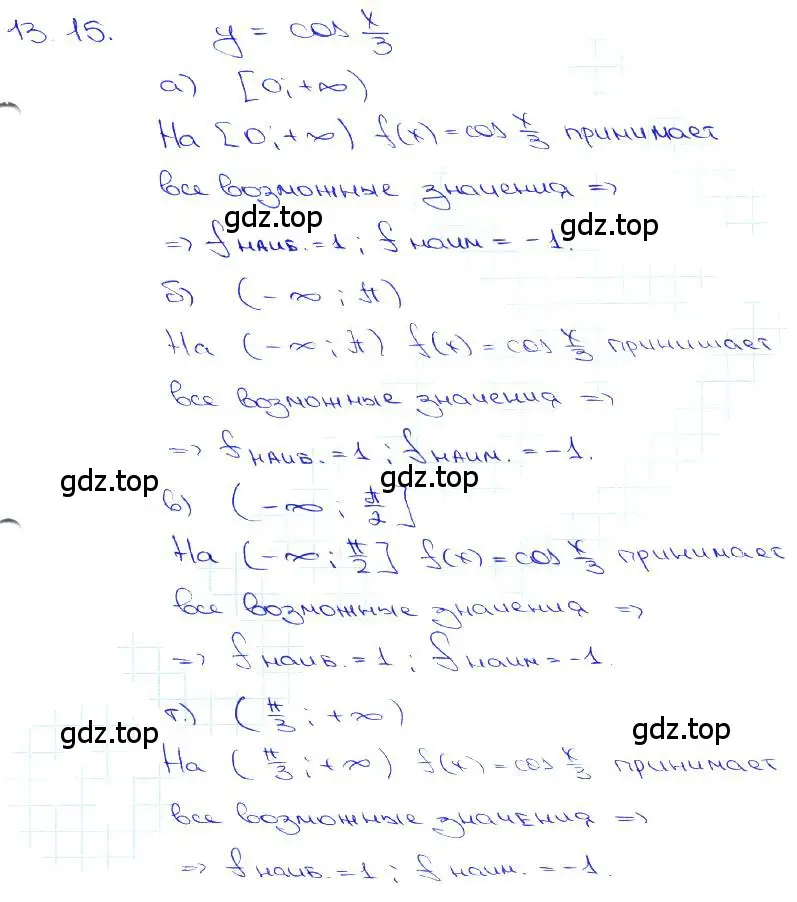 13.15. y = cos x/3
а) [0; +∞)
На [0; +∞) f(x) = cos x/3 принимает
все возможные значения =>
gdz.top gdz.top
=> f наиб. = 1 ; f наим = -1.
б) (-∞; π)
На (-∞; π) f(x) = cos x/3 принимает
все возможные значения =>
=> f наиб. = 1 ; f наим. = -1.
gdz.top gdz.top
в) (-∞; π/2]
На (-∞; π/2] f(x) = cos x/3 принимает
все возможные значения =>
=> f наиб. = 1 ; f наим = -1.
г) (π/3; +∞)
gdz.top gdz.top
На (π/3; +∞) f(x) = cos x/3 принимает
все возможные значения =>
=> f наиб. = 1 ; f наим. = -1.